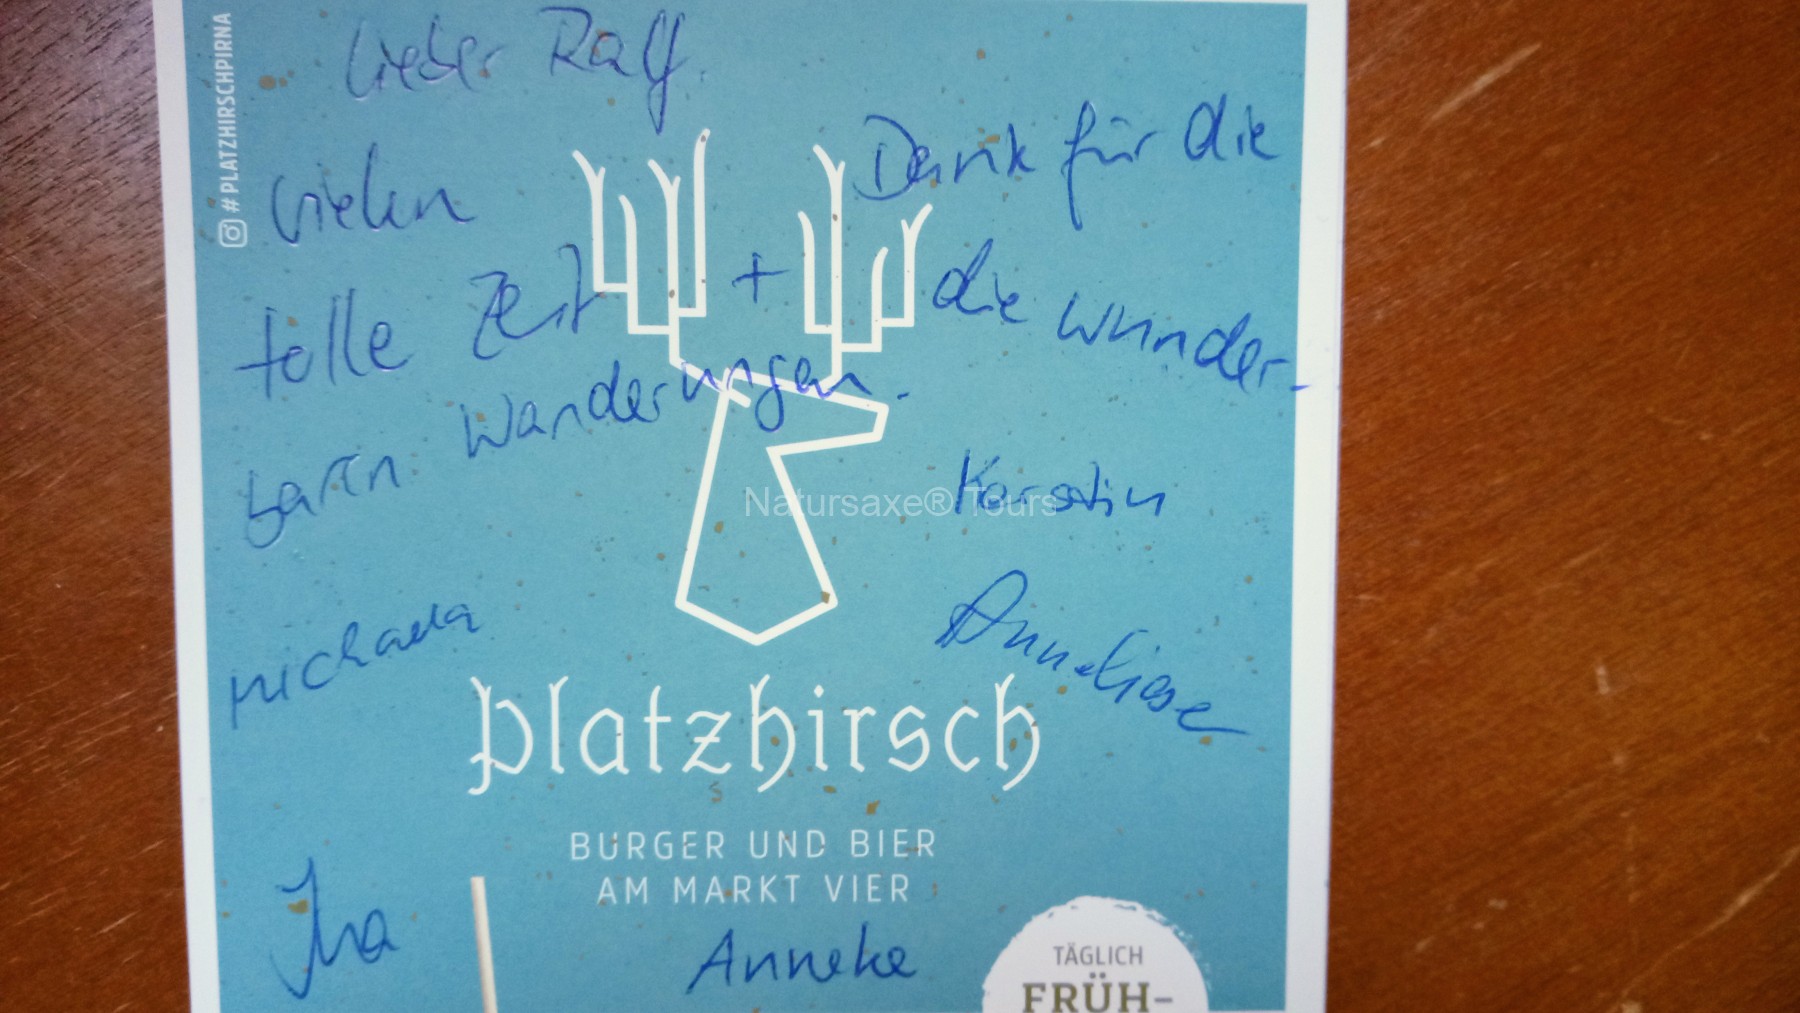 #PLATZHIRSCHPIRNA
Lieber Ralf,
vielen Dank für die
tolle Zeit + die wunder-
baren Wanderungen.
Kerstin
Natursaxe® Tours
Anneliese
Michaela
platzhirsch
BURGER UND BIER
AM MARKT VIER
Anneke
TÄGLICH
FRÜH-